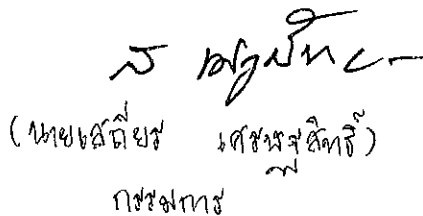 (นายเสถียร เศรษฐสิทธิ์)
กรรมการ